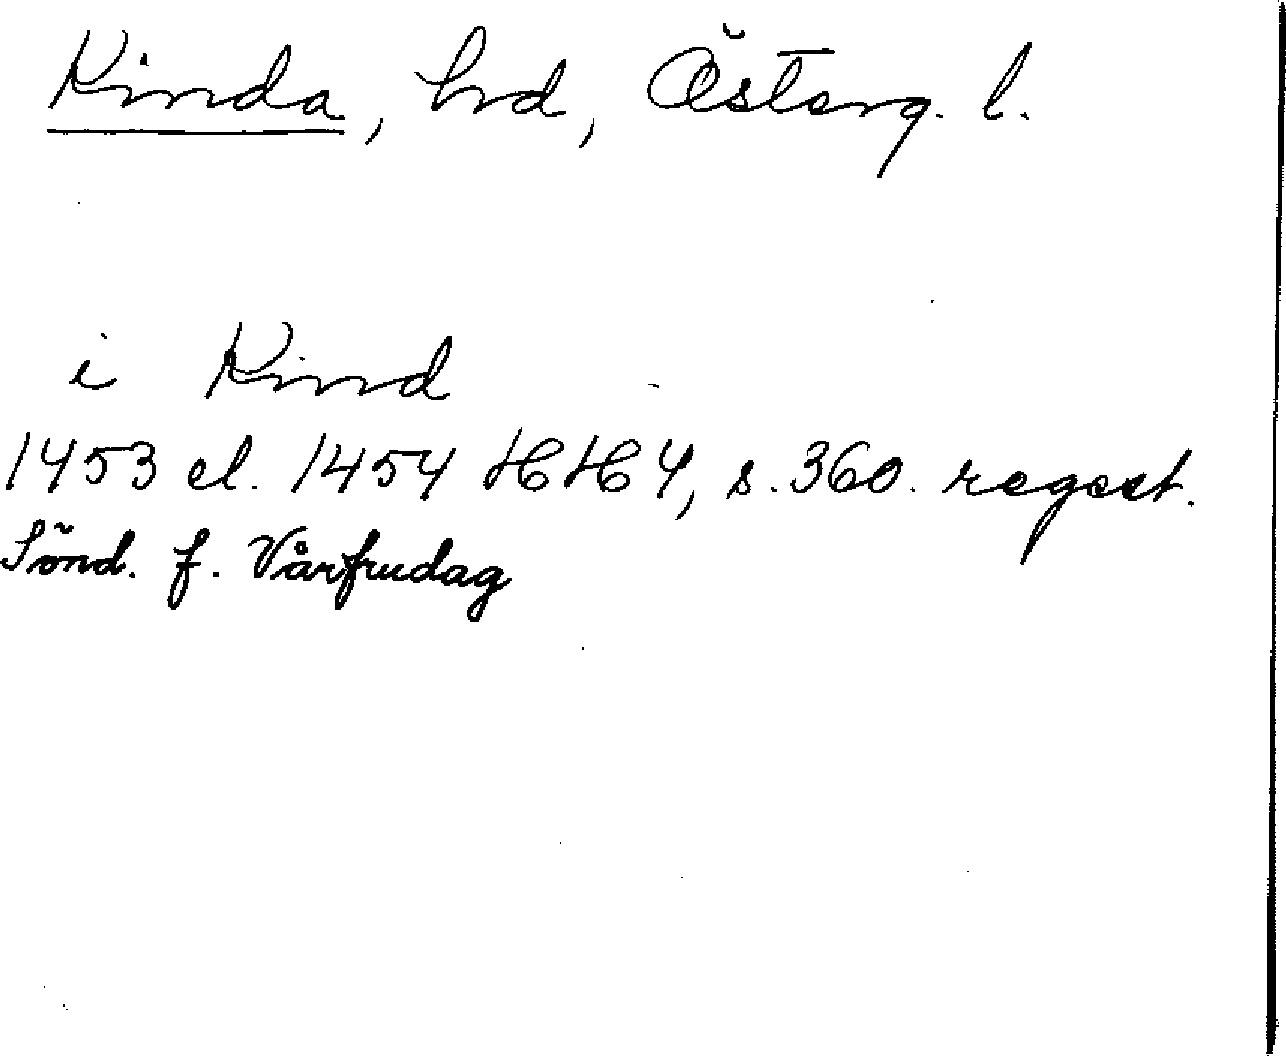 Kinda, hd, Österg. l.
i Kind
1453 el. 1454 HH 4, s. 360. regest.
Sönd. f. Vårfrudag